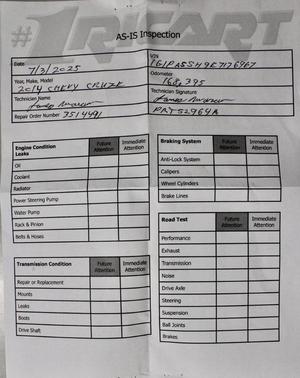 #1 RICART
AS-IS Inspection
Date 7/3/2025
VIN 1G1PA5SH9E7176967
Year, Make, Model
2014 CHEVY CRUZE
Odometer
168,395
Technician Name
Technician Signature
Repair Order Number 3514491
PAT52964A
Engine Condition Leaks
Future Attention
Immediate Attention
Oil
Coolant
Radiator
Power Steering Pump
Water Pump
Rack & Pinion
Belts & Hoses
Transmission Condition
Future Attention
Immediate Attention
Repair or Replacement
Mounts
Leaks
Boots
Drive Shaft
Braking System
Future Attention
Immediate Attention
Anti-Lock System
Calipers
Wheel Cylinders
Brake Lines
Road Test
Future Attention
Immediate Attention
Performance
Exhaust
Transmission
Noise
Drive Axle
Steering
Suspension
Ball Joints
Brakes